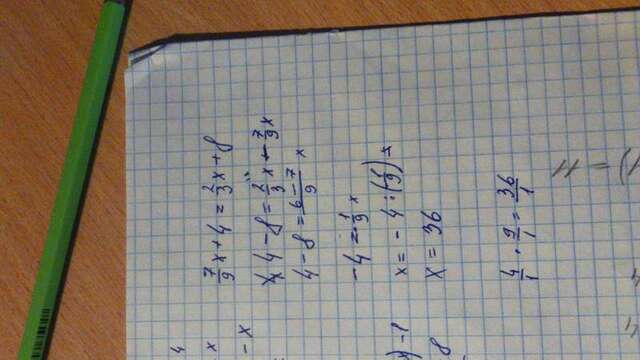 7/9 x + 4 = 2/3 x + 8
4 - 8 = 2/3 x - 7/9 x
4 - 8 = (6 - 7)/9 x
-4 = -1/9 x
x = -4 : (-1/9)
x = 36
4/1 · 9/1 = 36/1
4
x
- x
) - 1
8